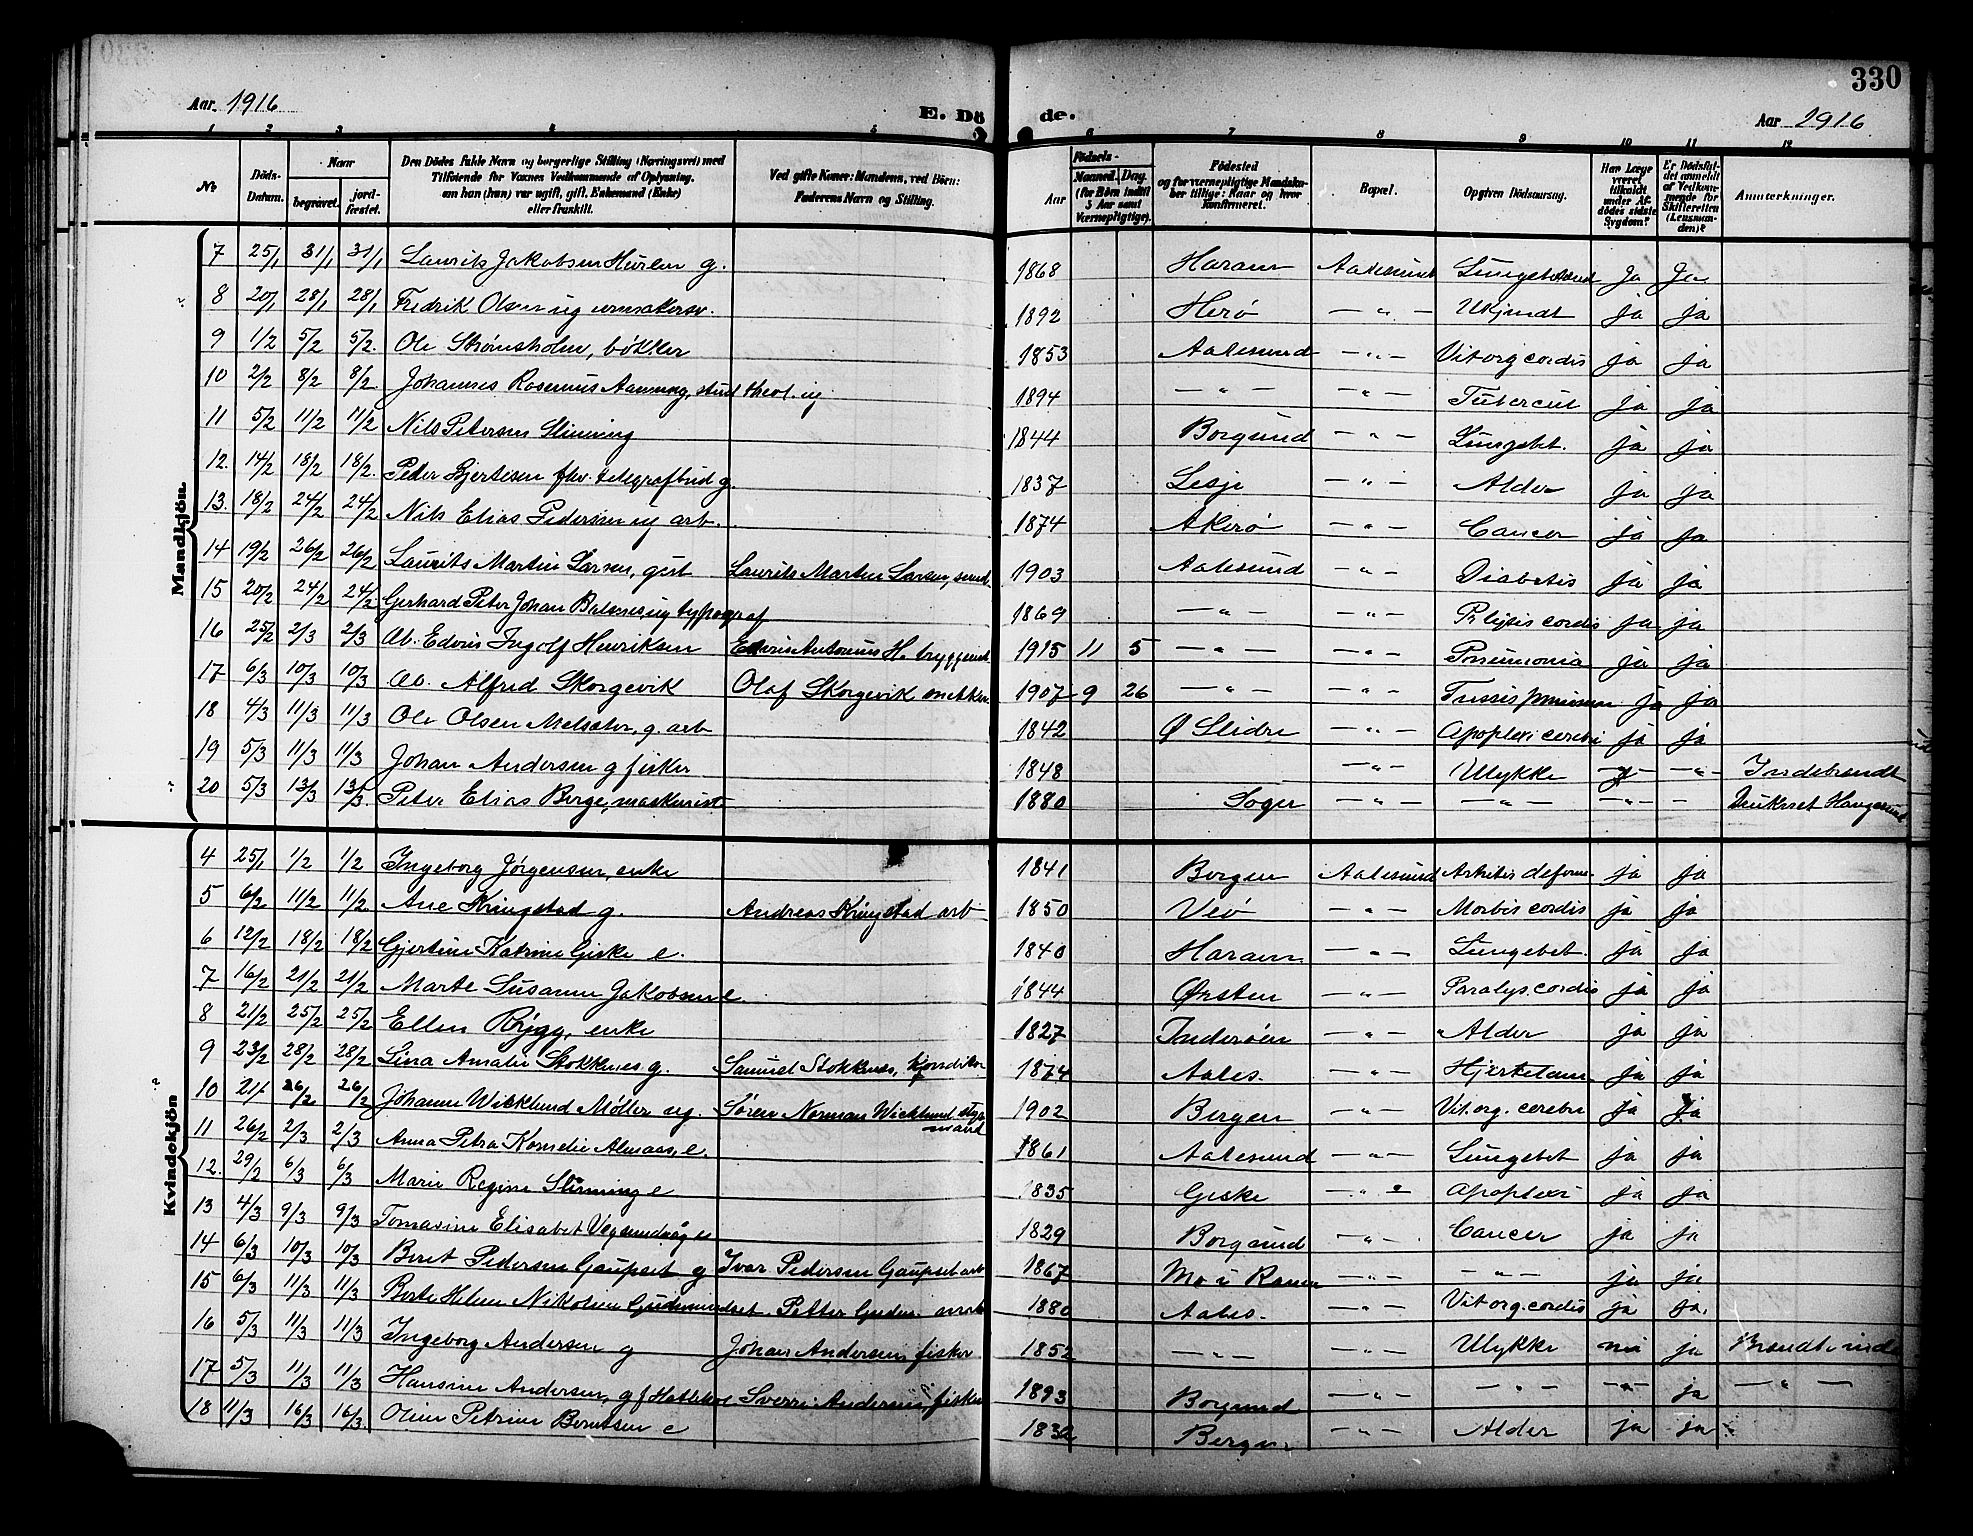 330
Aar 1916
E. Dö
de.
Aar 1916
1 2 3 4 5 6 7 8 9 10 11 12
No
Döds-Datum.
Naar
begravet.
jord-fæstet.
Den Dödes fulde Navn og borgerlige Stilling (Næringsvei) med
Tilföiende for Voxnes Vedkommende af Oplysning,
om han (hun) var ugift, gift, Enkemand (Enke)
eller fraskilt.
Ved gifte Koner: Mandens, ved Börn:
Faderens Navn og Stilling.
Födsels-
Aar
Maaned. Dag.
(for Börn indtil
5 Aar samt
Værnepligtige).
Födested
og for værnepligtige Mandska-
ber tillige: Naar og hvor
konfirmeret.
Bopæl.
Opgiven Dödsaarsag.
Har Læge
været
tilkaldt
under Af-
dödes sidste
Sygdom?
Er Dödsfal-
det anmeldt
af Vedkom-
mende for
Skifteretten
(Lensman-
den)?
Anmerkninger.
Mandkjön.
7 25/1 31/1 31/1 Laurits Jakobsen Hurlen g. 1868 Haram Aalesund Ja Ja
8 20/1 28/1 28/1 Fredrik Olsen ug urmakersv. 1892 Herö — " — Ukjendt ja ja
9 1/2 5/2 5/2. Ole Strømsholm, bøkker 1853 Aalesund — " — Vit. org cordis ja ja
10 2/2 8/2 8/2 Johannes Rosenius Aamung, stud theol. ug 1894 — " — — " — Tubercul ja ja
11 5/2 11/2 11/2 Nils Petersen Slinning 1844 Borgund — " — Lungebet. ja ja
12. 14/2 18/2 18/2. Peder Gjertsen fhv. telegrafbud g. 1837 Lesje — " — Alder ja ja
13. 18/2 24/2 24/2 Nils Elias Pedersen ug arb. 1874 Akerö — " — Cancer ja ja
14 19/2 26/2 26/2 Laurits Martin Larsen, gut Laurits Martin Larsen, smed 1903 Aalesund — " — Diabetis ja ja
15 20/2 24/2 24/2. Gerhard Peter Johan ug typograf 1869 — " — — " — cordis ja ja
16 25/2 2/3 2/3 Ab. Edvin Ingolf Henriksen Edvin Antonius H. 1915 11 5 — " — — " — Pneumonia ja ja
17 6/3 10/3 10/3 Ab. Alfred Skorgevik Olaf Skorgevik 1907 9 26 — " — — " — ja ja
18 4/3 11/3 11/3 Ole Olsen Melsæter, g. arb 1842 Ø Slidre — " — Apoplexi cerebri ja ja
19 5/3 11/3 11/3 Johan Andersen g fisker 1848 — " — Ulykke — " — Indebrændt
20 5/3 13/3 13/3. Peter Elias Berge, maskinist 1880 — " — — " — — " — — Haugesund
Kvindekjön
4 25/1 1/2 1/2 Ingeborg Jørgensen, enke 1841 Bergen Aalesund deform. ja ja
5 6/2 11/2 11/2. Ane Kringstad g. Andreas Kringstad arb 1850 Veö — " — Morbis cordis ja ja
6 12/2 18/2 18/2 Gjertine Katrine Giske e. 1840 Haram — " — Lungebet. ja ja
7 16/2 21/2 21/2 Marte Susanne Jakobsen e. 1844 Ørsten — " — Paralys. cordis ja ja
8 21/2 25/2 25/2 Ellen Rÿgg, enke 1827 Inderöen — " — Alder ja ja
9 23/2 28/2 28/2 Lina Amalie Stokknes g. Samuel Stokknes, konditor 1874 Aales. — " — Hjertelam. ja ja
10 21/ 26/2 26/2 Johanne Wicklund Møller ug. Søren Norman Wicklund styr
mand 1902 Bergen — " — Vit. org. cerebri ja ja
11 26/2 2/3 2/3 Anna Petra Kornelie Almaas, e. 1861 Aalesund — " — Lungebet ja ja
12. 29/2 6/3 6/3 Marie Regine Slinning e 1835 Giske — " — Apoplexi ja ja
13 4/3 9/3 9/3 Tomasine Elisabet Vegsundvåg e 1829 Borgund — " — Cancer ja ja
14 6/3 10/3 10/3 Beret Pedersen Gaupset g Ivar Pedersen Gaupset arb 1867 Mo i Ranen — " — — " — ja ja
15 6/3 11/3 11/3 Berte Helene Nikoline Gudmundset Petter Gudm. 1880 Aales. — " — Vit org. cordis ja ja.
16 5/3 11/3 11/3 Ingeborg Andersen g Johan Andersen, fisker 1852 — " — Ulykke nei ja Brændt inde
17 5/3 11/3 11/3 Hansine Andersen, g Sverre Andersen, fisker 1893 Borgund — " — — " — — " — ja — " —
18 11/3 16/3 16/3. Oline Petrine Berntsen e Bergen — " — Alder ja ja